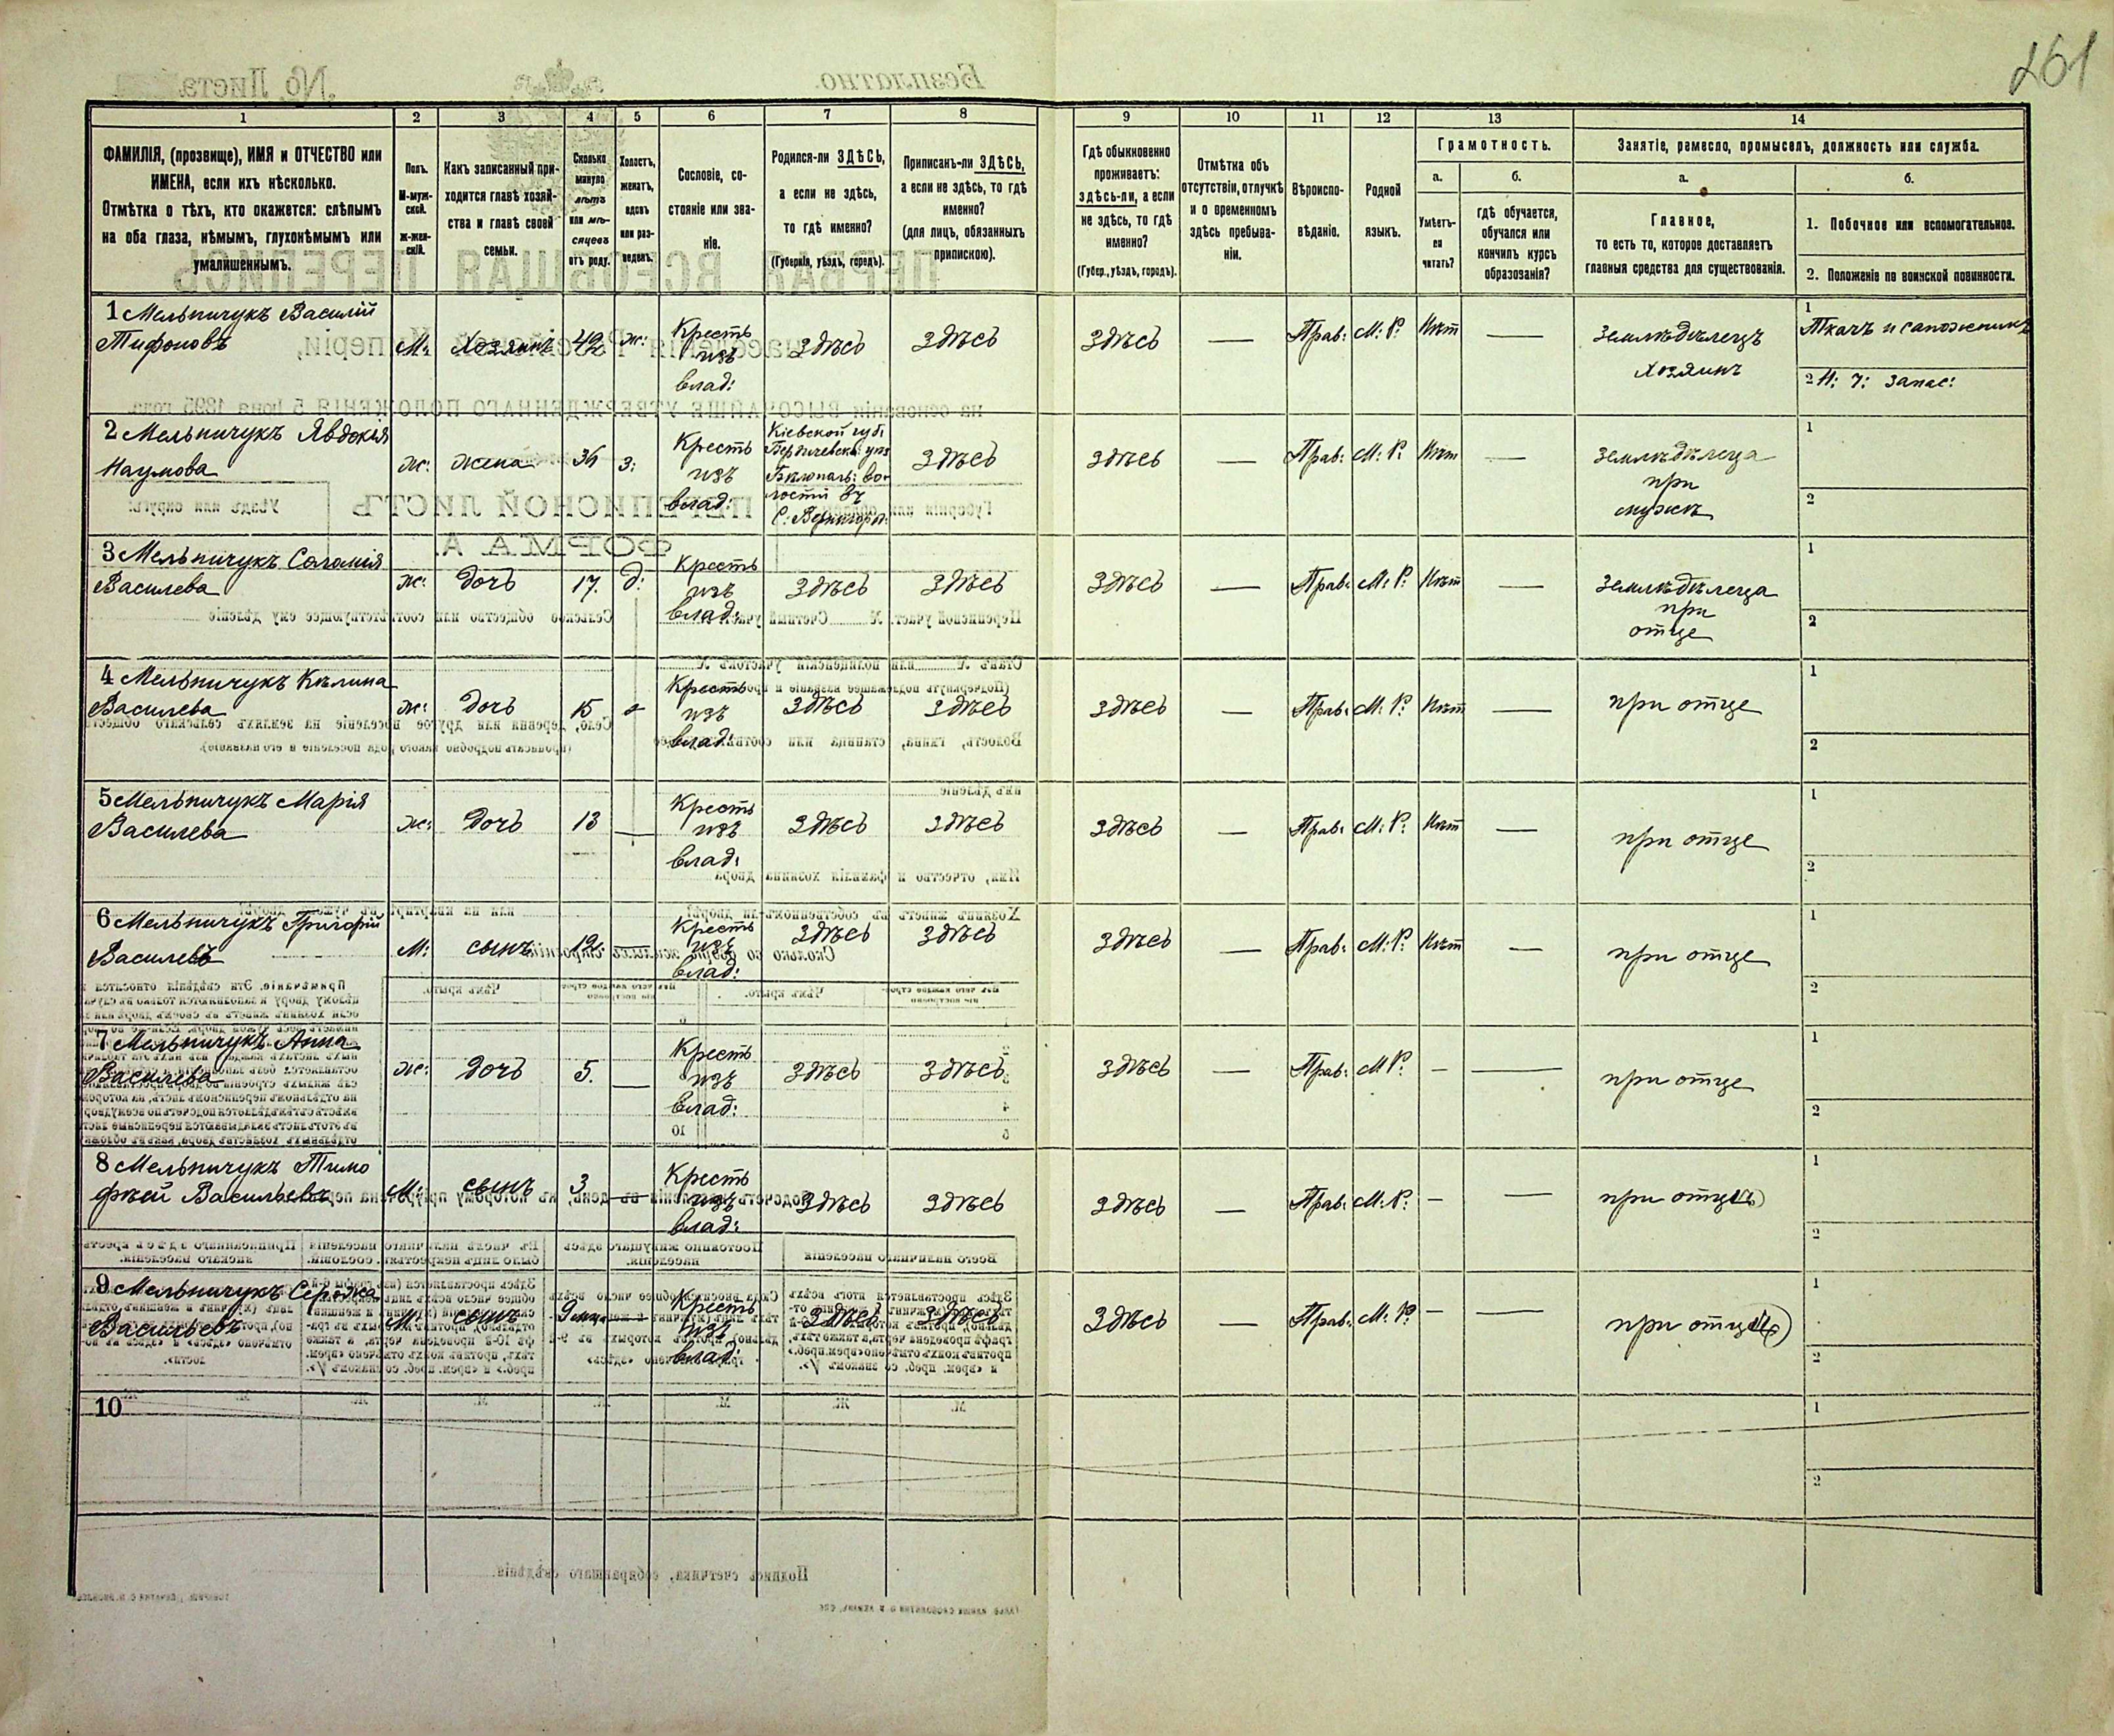 261
1 2 3 4 5 6 7 8 9 10 11 12 13 14
ФАМИЛІЯ, (прозвище), ИМЯ и ОТЧЕСТВО или
ИМЕНА, если ихъ нѣсколько.
Отмѣтка о тѣхъ, кто окажется: слѣпымъ
на оба глаза, нѣмымъ, глухонѣмымъ или
умалишеннымъ.
Полъ.
М-муж-
ской.
ж-жен-
скій.
Какъ записанный при-
ходится главѣ хозяй-
ства и главѣ своей
семьи.
Сколько
минуло
лѣтъ
или мѣ-
сяцевъ
отъ роду.
Холостъ,
женатъ,
вдовъ
или раз-
веденъ.
Сословіе, со-
стояніе или зва-
ніе.
Родился-ли ЗДѢСЬ,
а если не здѣсь,
то гдѣ именно?
(Губернія, уѣздъ, городъ).
Приписанъ-ли ЗДѢСЬ,
а если не здѣсь, то гдѣ
именно?
(для лицъ, обязанныхъ
припискою).
Гдѣ обыкновенно
проживаетъ:
здѣсь-ли, а если
не здѣсь, то гдѣ
именно?
(Губер., уѣздъ, городъ).
Отмѣтка объ
отсутствіи, отлучкѣ
и о временномъ
здѣсь пребыва-
ніи.
Вѣроиспо-
вѣданіе.
Родной
языкъ.
Грамотность.
а.
Умѣетъ-
ли
читать?
б.
гдѣ обучается,
обучался или
кончилъ курсъ
образованія?
Занятіе, ремесло, промыселъ, должность или служба.
а.
Главное,
то есть то, которое доставляетъ
главныя средства для существованія.
б.
1. Побочное или вспомогательное.
2. Положеніе по воинской повинности.
1 Мельничукъ Василій
Тифоновъ
М:
Хозяинъ
42
ж:
Кресть
изъ
влад:
Здѣсь
Здѣсь
Здѣсь
—
Прав:
М: Р:
Нѣт
—
Землѣдѣлецъ
Хозяинъ
1
Ткачъ и сапожникъ
2 Н: Ч: запас:
2 Мельничукъ Явдокія
Наумова
ж:
жена
36
з:
Кресть
изъ
влад:
Кіевской губ:
Бердичевск: уѣз
Бѣлопол: во-
лости въ
С:
Здѣсь
здѣсь
—
Прав:
М: Р:
Нѣт
—
Землѣдѣлеца
при
мужѣ
1
2
3 Мельничукъ Соломія
Василева
ж:
дочь
17.
д:
Кресть
изъ
влад:
Здѣсь
Здѣсь
Здѣсь
—
Прав:
М: Р:
Нѣт
—
Землѣдѣлеца
при
отце
1
2
4 Мельничукъ Кѣлина
Василева
ж:
дочь
15
Кресть
изъ
влад:
Здѣсь
Здѣсь
здѣсь
—
Прав:
М: Р:
Нѣт
—
при отце
1
2
5 Мельничукъ Марія
Василева
ж:
дочь
13
—
Кресть
изъ
влад:
Здѣсь
Здѣсь
здѣсь
—
Прав:
М: Р:
Нѣт
—
при отце
1
2
6 Мельничукъ Григорій
Василевъ
М:
сынъ
12:
—
Кресть
изъ
влад:
Здѣсь
Здѣсь
здѣсь
—
Прав:
М: Р:
Нѣт
—
при отце
1
2
7 Мельничукъ Анна
Василева
ж:
дочь
5.
—
Кресть
изъ
влад:
Здѣсь
Здѣсь
здѣсь
—
Прав:
М Р:
—
—
при отце
1
2
8 Мельничукъ Тимо
фѣей Васильевъ
М:
сынъ
3
—
Кресть
изъ
влад:
Здѣсь
Здѣсь
здѣсь
—
Прав:
М: Р:
—
—
при отцѣ
1
2
9 Мельничукъ
Васильевъ
М:
сынъ
9 мец
Кресть
изъ
влад:
Здѣсь
Здѣсь
здѣсь
—
Прав:
М: Р:
—
—
при отце
1
2
10
1
2